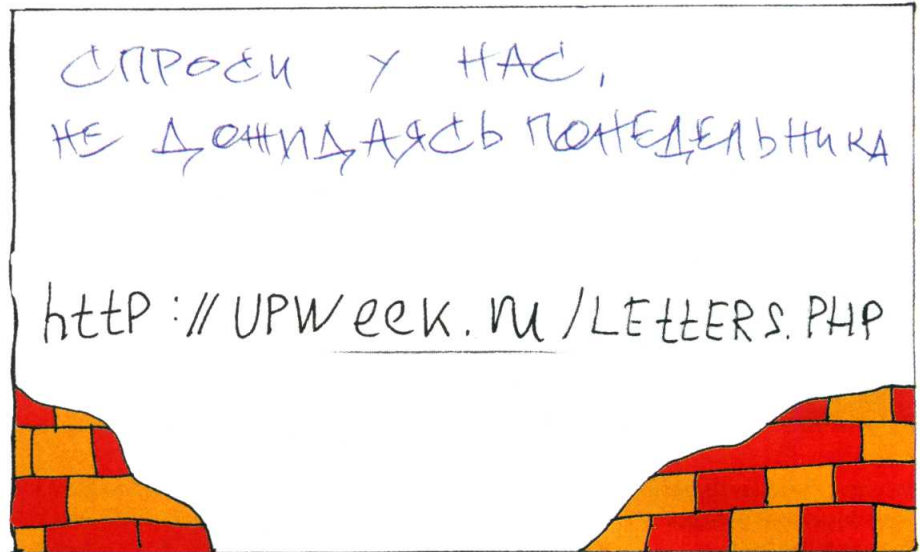 СПРОСИ У НАС,
НЕ ДОЖИДАЯСЬ ПОНЕДЕЛЬНИКА
httP://UPWeeK.ru/LEttERS.PHP